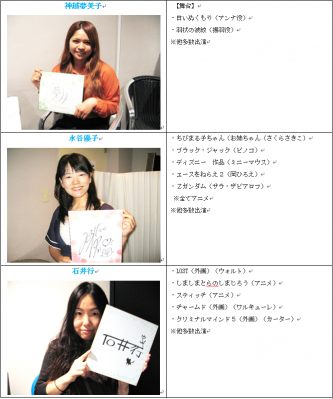 神越夢美子
【舞台】
・白いぬくもり（アンナ役）
・羽衣の波紋（揚羽役）
※他多数出演
水谷優子
・ちびまる子ちゃん（お姉ちゃん（さくらさきこ）
・ブラック・ジャック（ピノコ）
・ディズニー 作品（ミニーマウス）
・エースをねらえ２（岡ひろえ）
・Ｚガンダム（サラ・ザビアロフ）
※全てアニメ
※他多数出演
石井行
・LOST（外画）（ウォルト）
・しましまとらのしまじろう（アニメ）
・スティッチ（アニメ）
・チャームド（外画）（ワルキューレ）
・クリミナルマインド５（外画）（カーター）
※他多数出演